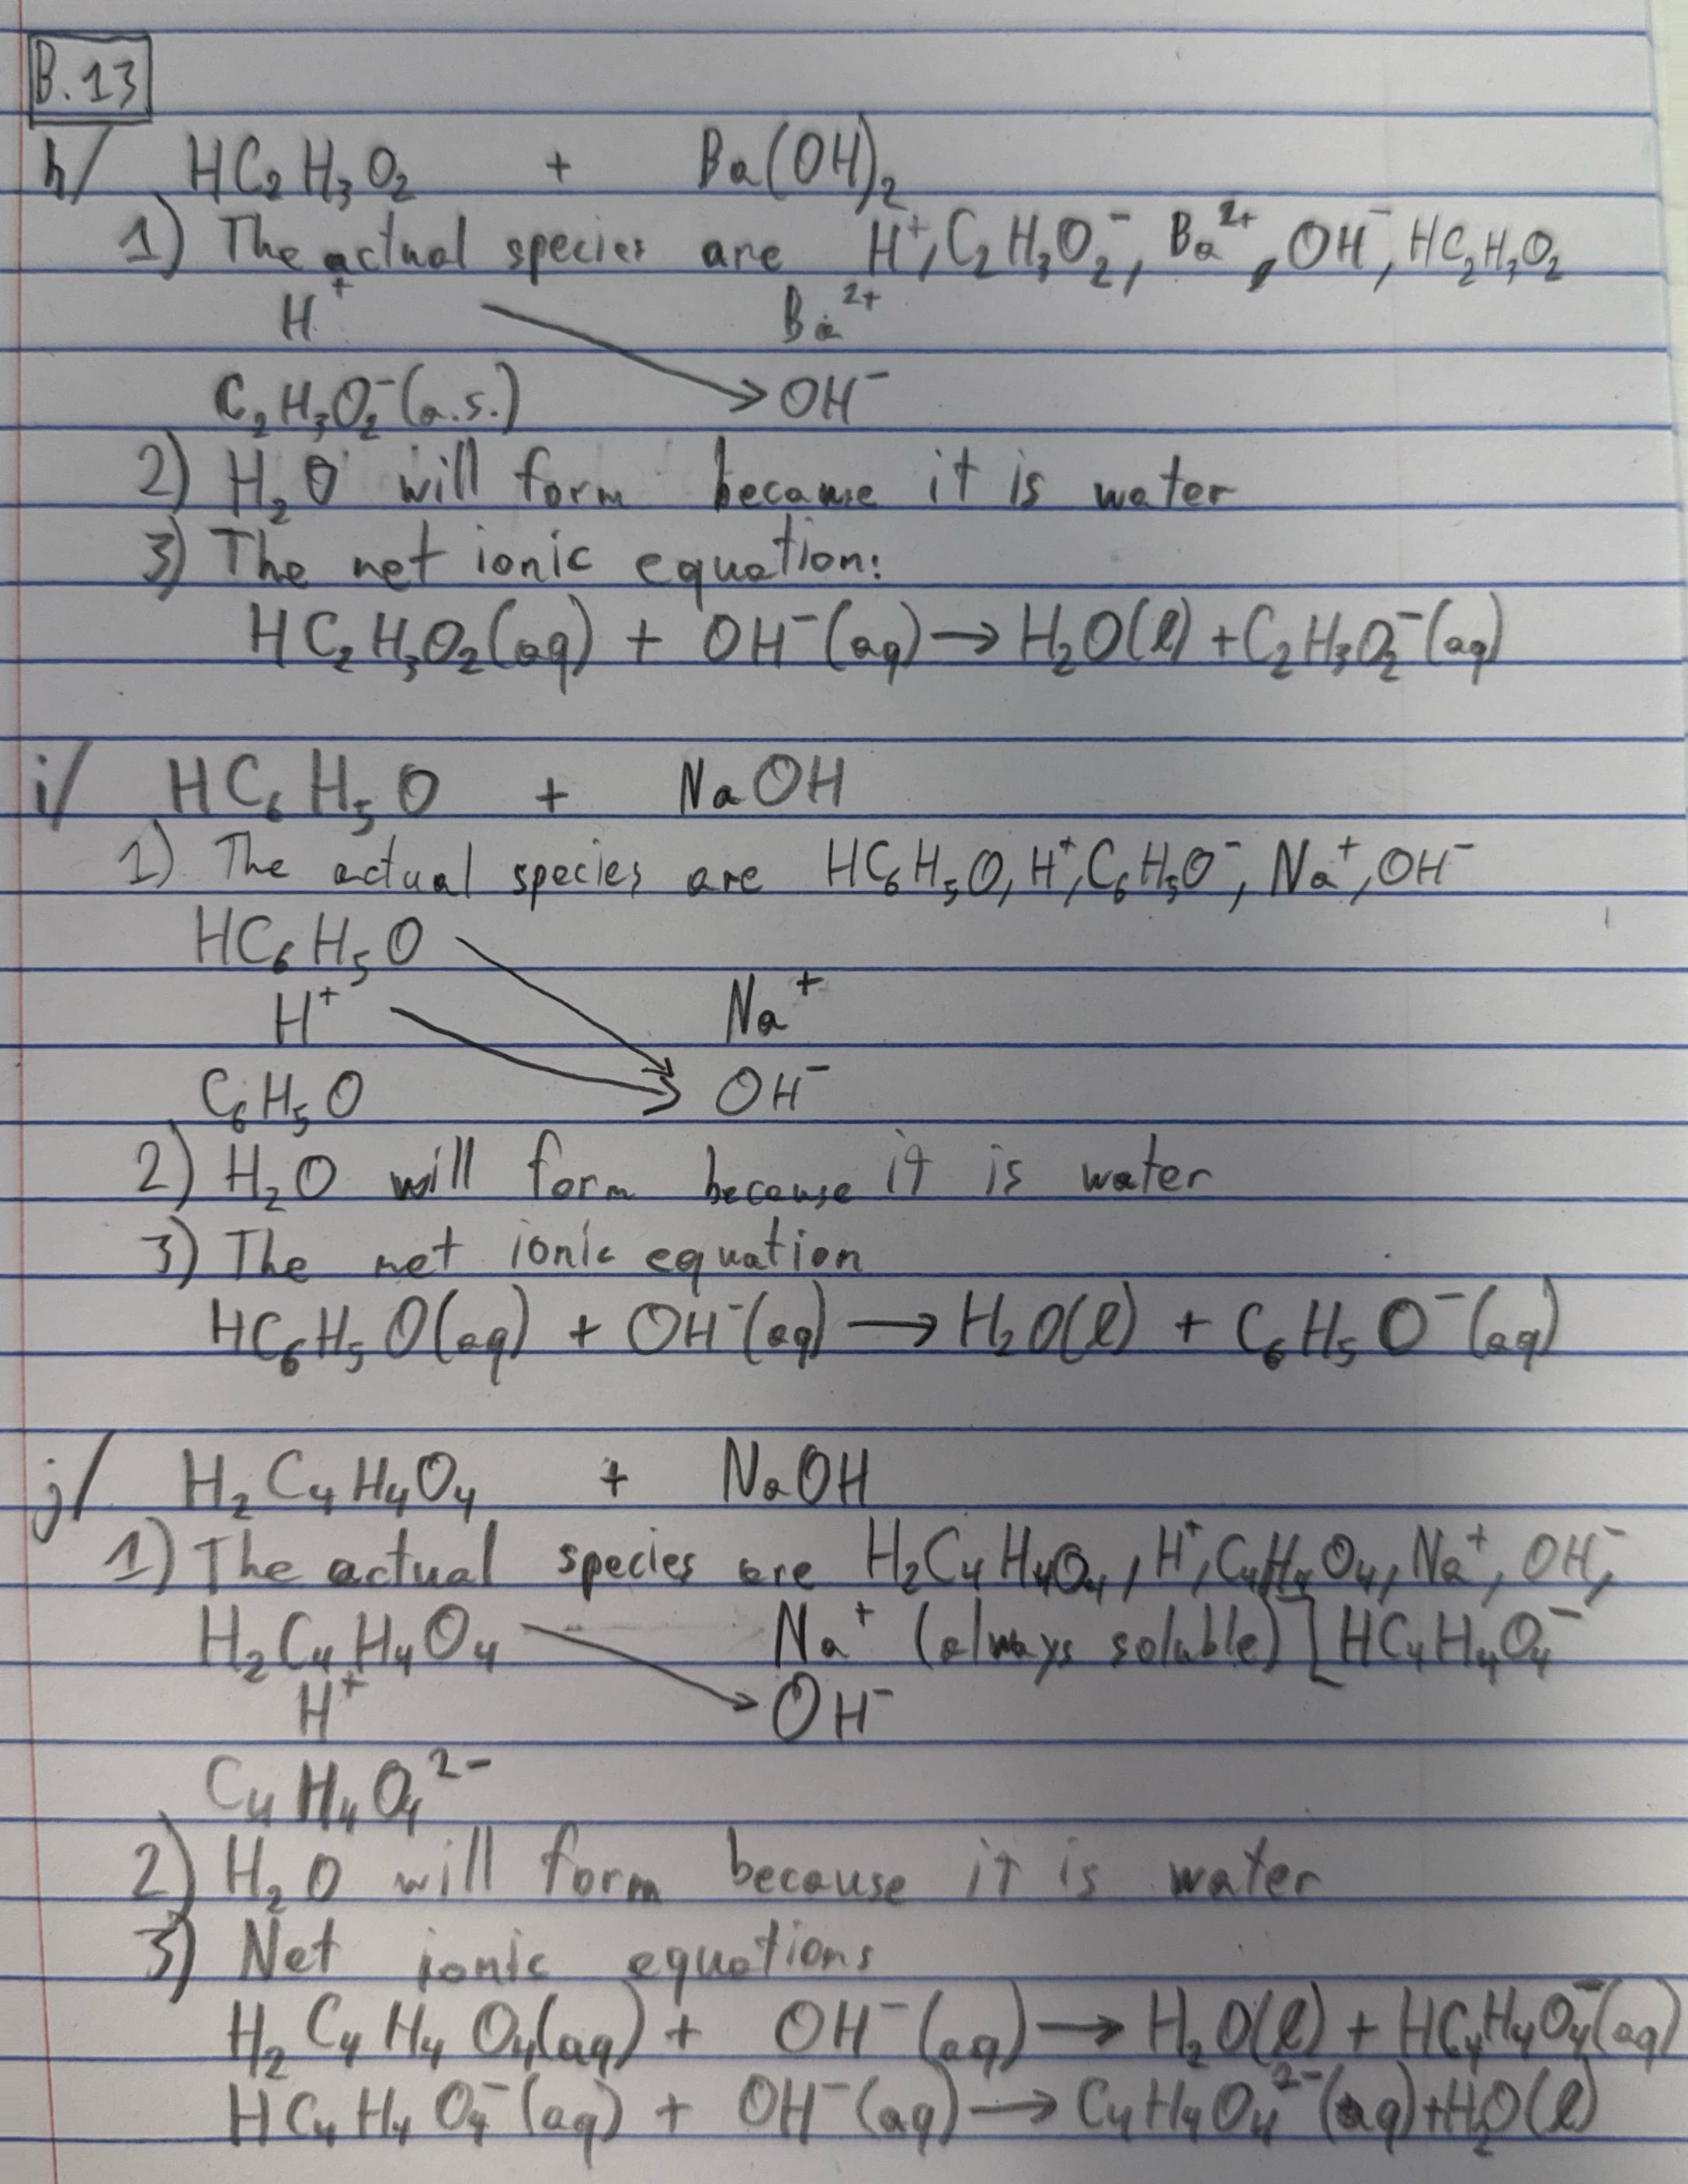 B.13
h/ HC₂H₃O₂ + Ba(OH)₂
1) The actual species are H⁺, C₂H₃O₂⁻, Ba²⁺, OH⁻, HC₂H₃O₂
H⁺ Ba²⁺
C₂H₃O₂⁻(a.s.) → OH⁻
2) H₂O will form because it is water
3) The net ionic equation:
HC₂H₃O₂(aq) + OH⁻(aq) → H₂O(l) + C₂H₃O₂⁻(aq)
i/ HC₆H₅O + NaOH
1) The actual species are HC₆H₅O, H⁺, C₆H₅O⁻, Na⁺, OH⁻
HC₆H₅O
H⁺ Na⁺
C₆H₅O → OH⁻
2) H₂O will form because it is water
3) The net ionic equation
HC₆H₅O(aq) + OH⁻(aq) → H₂O(l) + C₆H₅O⁻(aq)
j/ H₂C₄H₄O₄ + NaOH
1) The actual species are H₂C₄H₄O₄, H⁺, C₄H₄O₄, Na⁺, OH⁻,
H₂C₄H₄O₄ Na⁺ (always soluble) [HC₄H₄O₄⁻
H⁺ → OH⁻
C₄H₄O₄²⁻
2) H₂O will form because it is water
3) Net ionic equations
H₂C₄H₄O₄(aq) + OH⁻(aq) → H₂O(l) + HC₄H₄O₄⁻(aq)
HC₄H₄O₄⁻(aq) + OH⁻(aq) → C₄H₄O₄²⁻(aq) + H₂O(l)